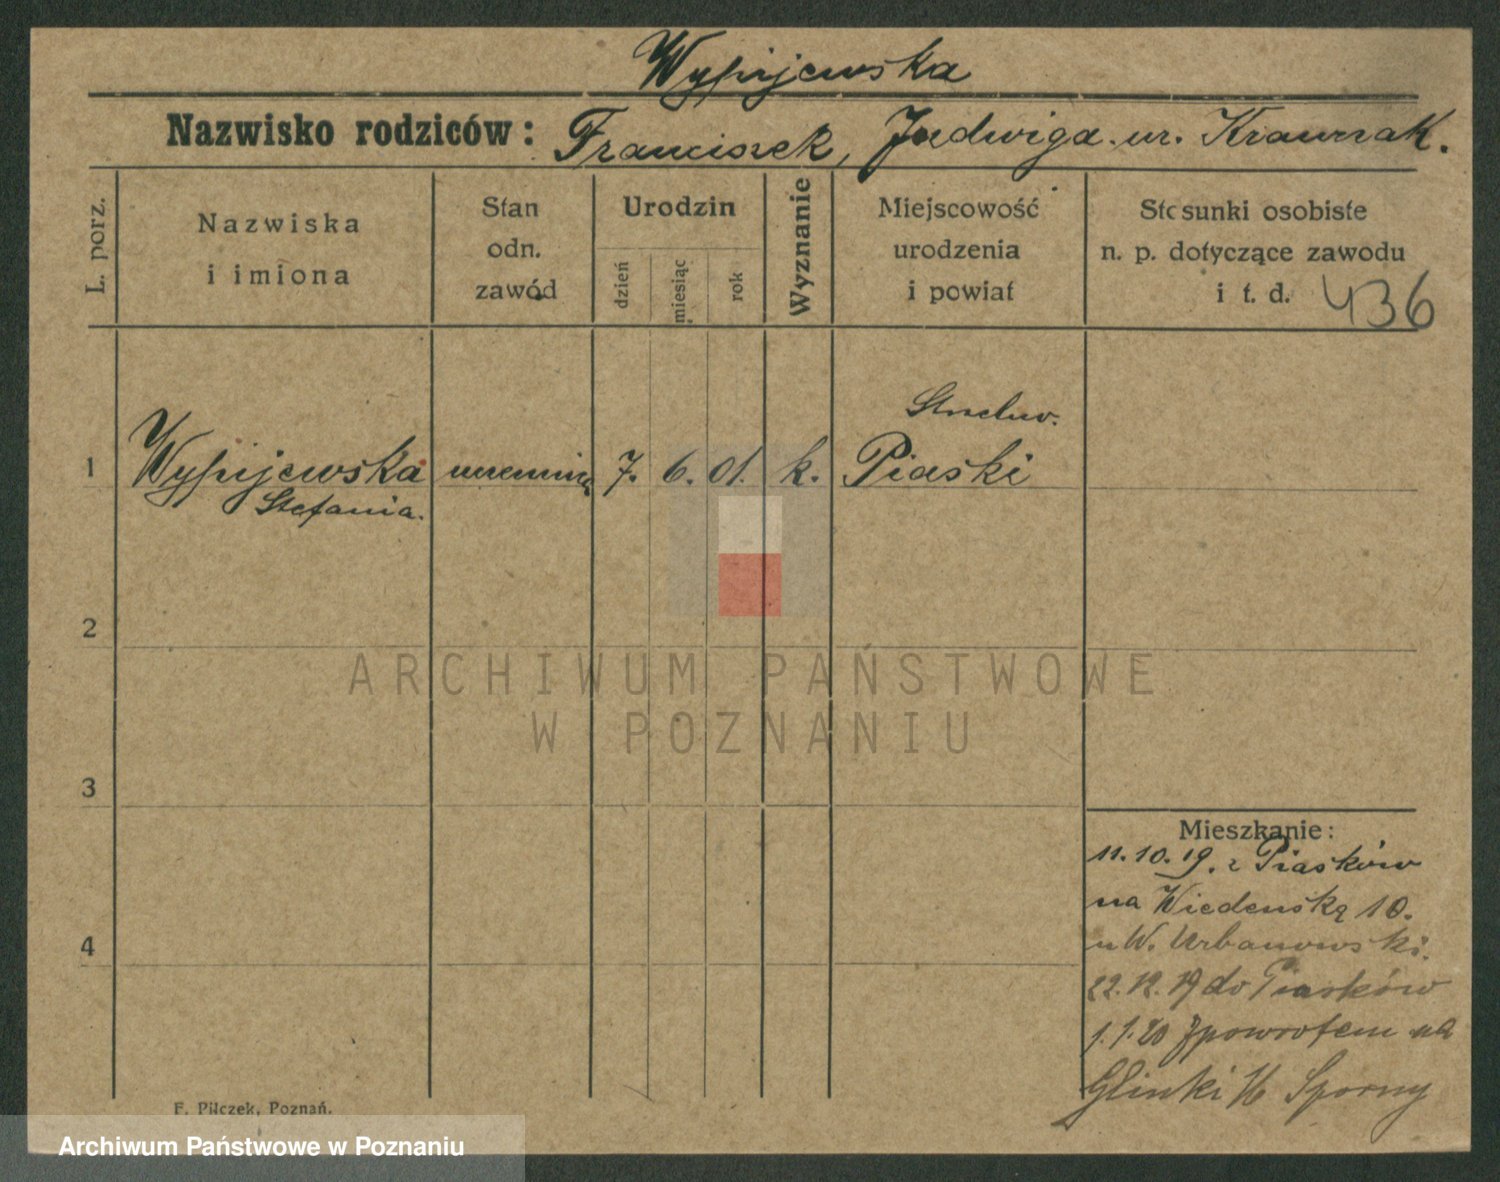 Wypijewska
Nazwisko rodziców: Franciszek, Jadwiga ur. Krawczak.
L. porz.
Nazwiska
i imiona
Stan
odn.
zawód
Urodzin
dzień
miesiąc
rok
Wyznanie
Miejscowość
urodzenia
i powiat
Stosunki osobiste
n. p. dotyczące zawodu
i t. d. 436
Strzelno.
1 Wypijewska uczennica 7. 6. 01. k. Piaski
Stefania.
2
3
4
Mieszkanie:
11.10.19. z Piasków
na Wiedeńską 10.
u W. Urbanowski.
22.12.19 do Piasków
1.1.20 zpowrotem na
Glinki Sporny
F. Pilczek, Poznań.
ARCHIWUM PAŃSTWOWE
W POZNANIU
Archiwum Państwowe w Poznaniu